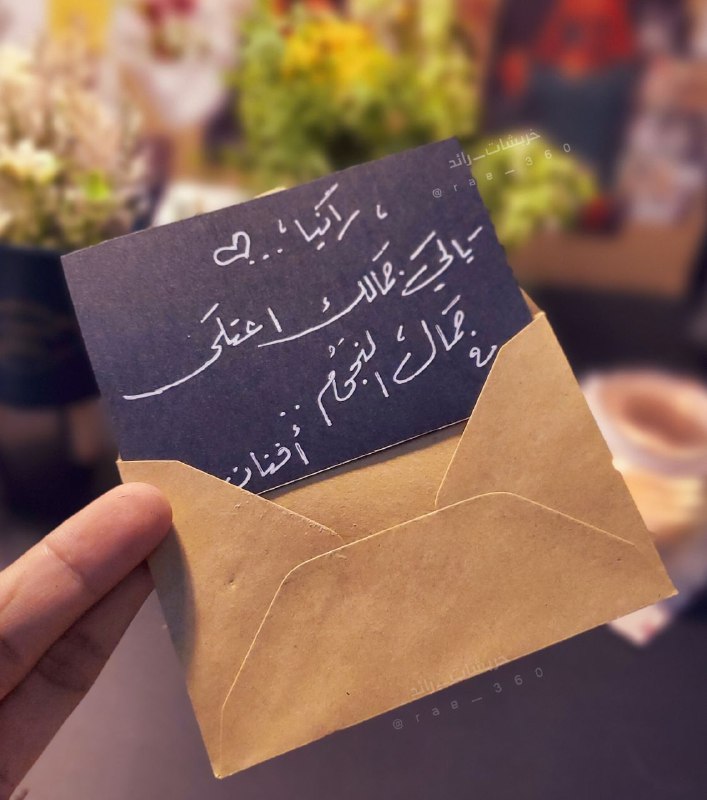 خربشات_رائد
@rae_360
رانيا ، ..♡
يالي جمالك اعتلى
جمال النجوم
.. أفنان
خربشات_رائد
@rae_360